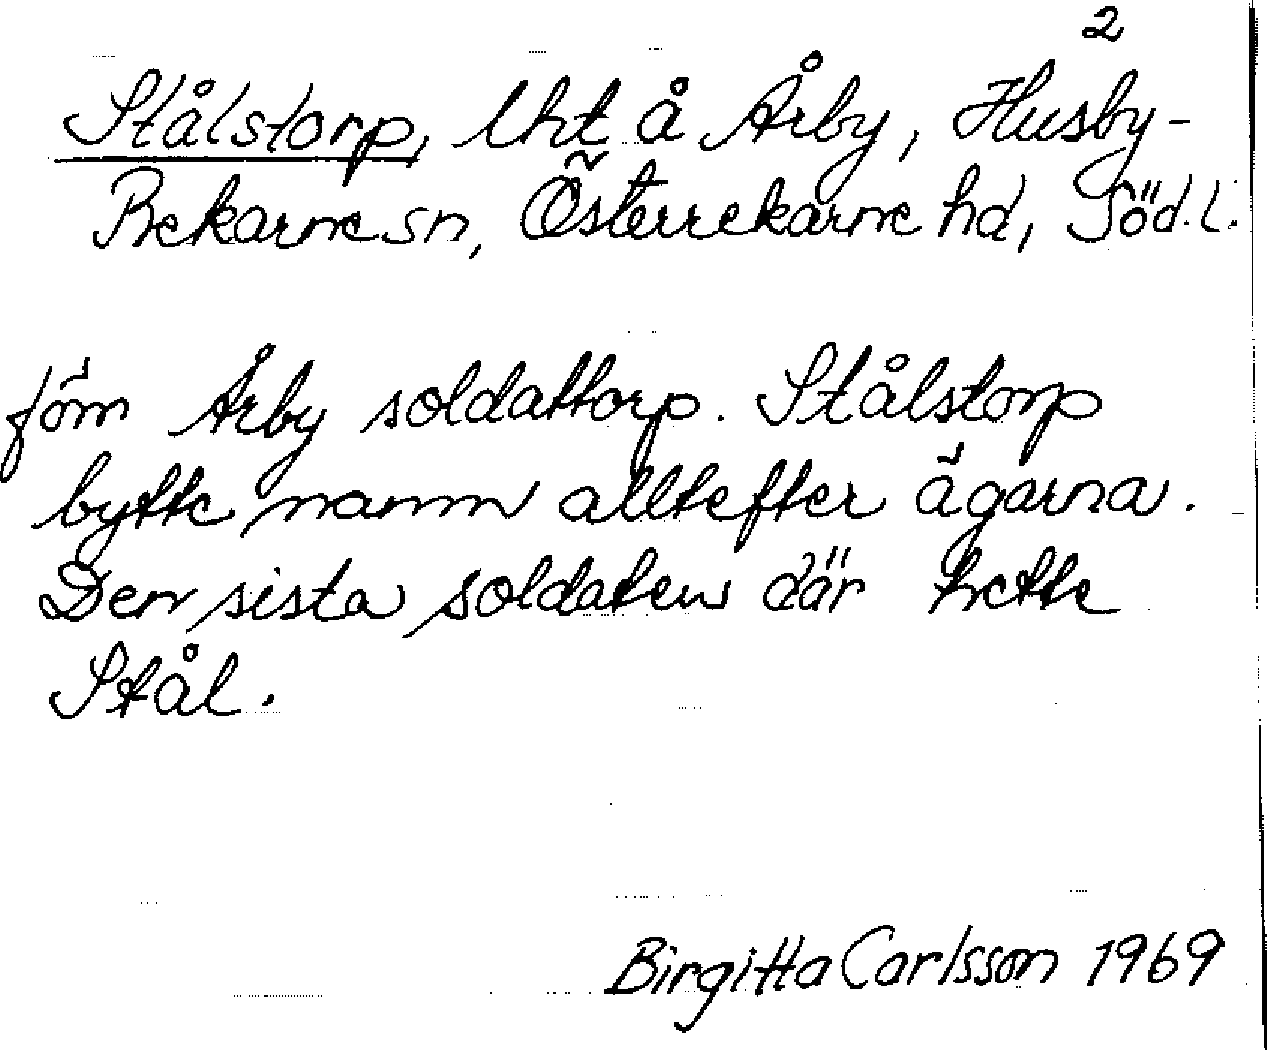 2
Stålstorp, lht å Årby, Husby-
Rekarne sn, Österrekarne hd, Söd.l.
förn Årby soldattorp. Stålstorp
bytte namn alltefter ägarna.
Den sista soldaten där hette
Stål.
Birgitta Carlsson 1969